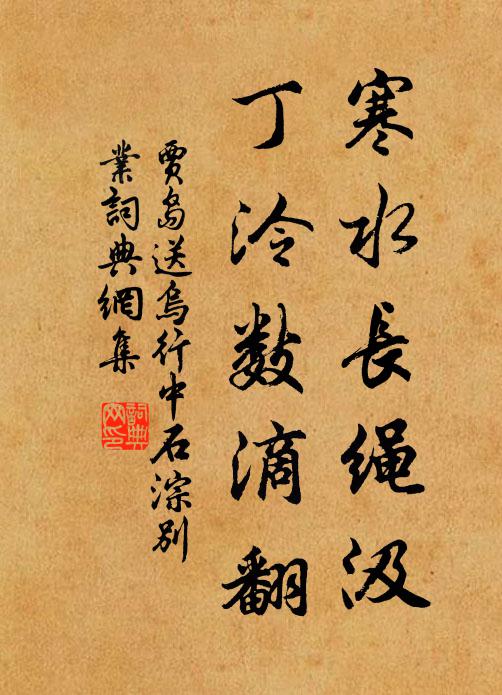 寒水长绳汲
丁泠数滴翻
贾岛送乌行中石淙别
业词典网集
词典
网印